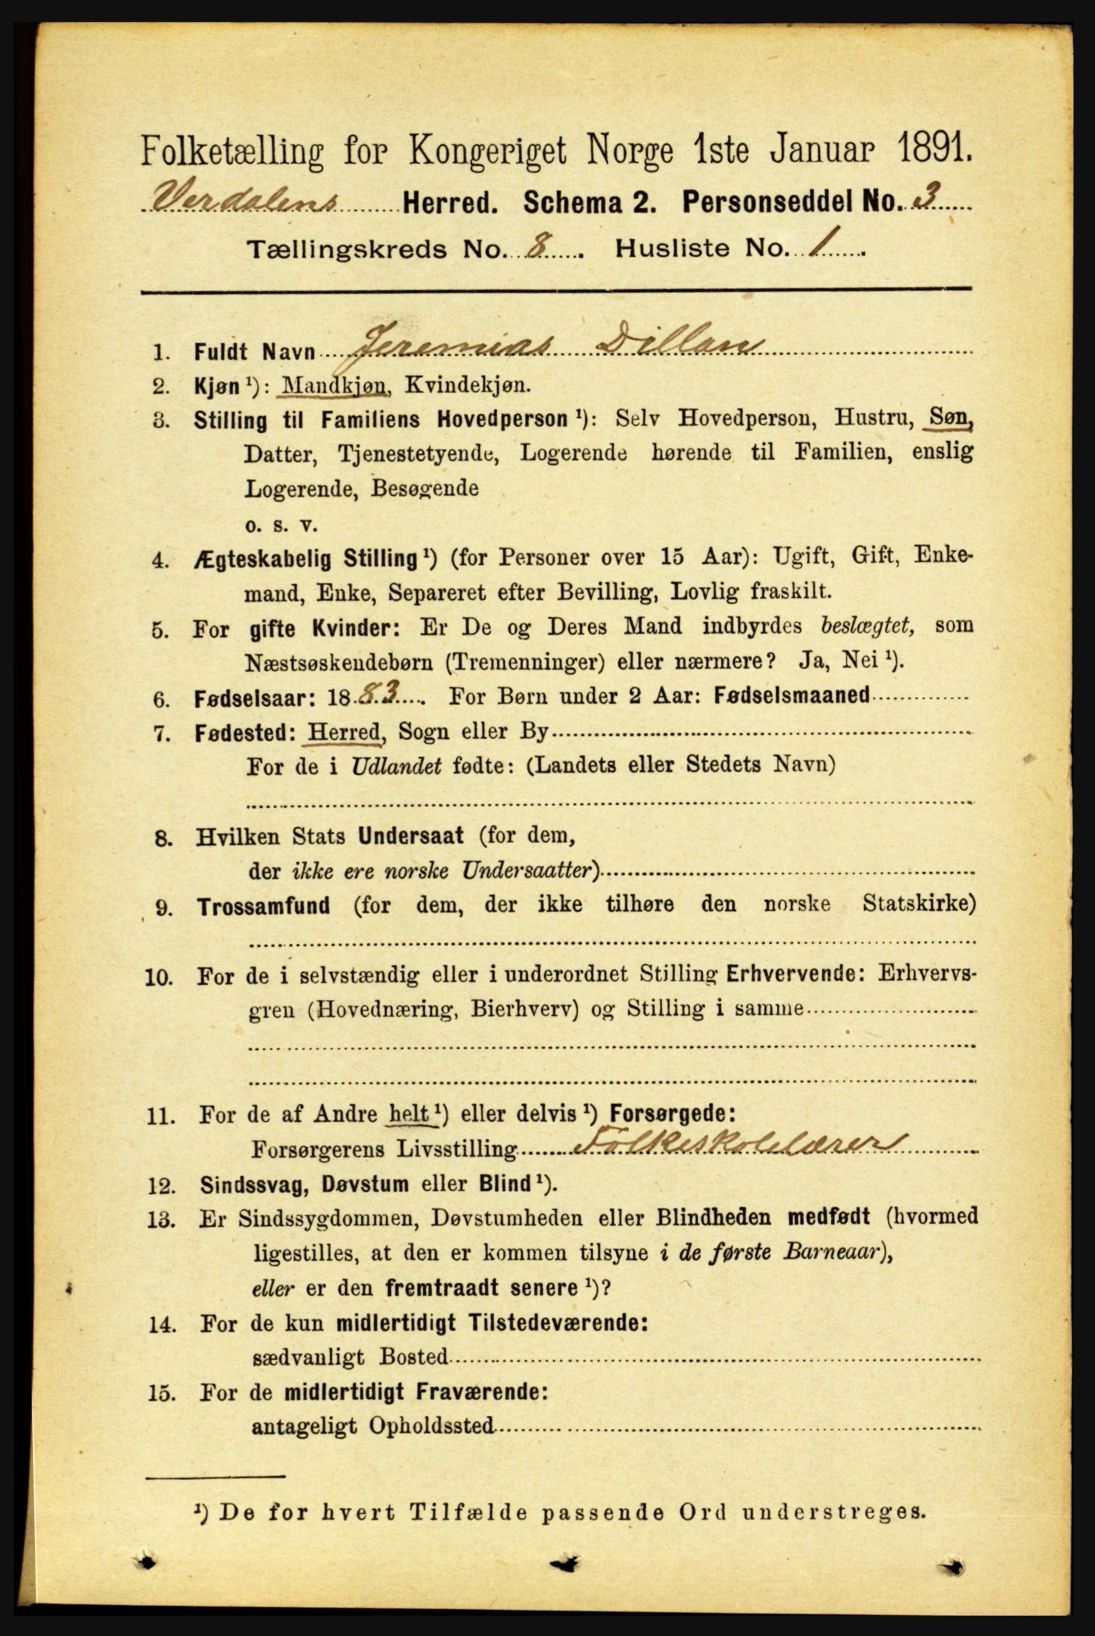 Folketælling for Kongeriget Norge 1ste Januar 1891.
Verdalens Herred. Schema 2. Personseddel No. 3
Tællingskreds No. 8. Husliste No. 1.
1. Fuldt Navn Jeremias Dillan
2. Kjøn ¹): Mandkjøn, Kvindekjøn.
3. Stilling til Familiens Hovedperson ¹): Selv Hovedperson, Hustru, Søn,
Datter, Tjenestetyende, Logerende hørende til Familien, enslig
Logerende, Besøgende
o. s. v.
4. Ægteskabelig Stilling ¹) (for Personer over 15 Aar): Ugift, Gift, Enke-
mand, Enke, Separeret efter Bevilling, Lovlig fraskilt.
5. For gifte Kvinder: Er De og Deres Mand indbyrdes beslægtet, som
Næstsøskendebørn (Tremenninger) eller nærmere? Ja, Nei ¹).
6. Fødselsaar: 1883. For Børn under 2 Aar: Fødselsmaaned
7. Fødested: Herred, Sogn eller By
For de i Udlandet fødte: (Landets eller Stedets Navn)
8. Hvilken Stats Undersaat (for dem,
der ikke ere norske Undersaatter)
9. Trossamfund (for dem, der ikke tilhøre den norske Statskirke)
10. For de i selvstændig eller i underordnet Stilling Erhvervende: Erhvervs-
gren (Hovednæring, Bierhverv) og Stilling i samme
11. For de af Andre helt ¹) eller delvis ¹) Forsørgede:
Forsørgerens Livsstilling Folkeskolelærer
12. Sindssvag, Døvstum eller Blind ¹).
13. Er Sindssygdommen, Døvstumheden eller Blindheden medfødt (hvormed
ligestilles, at den er kommen tilsyne i de første Barneaar),
eller er den fremtraadt senere ¹)?
14. For de kun midlertidigt Tilstedeværende:
sædvanligt Bosted
15. For de midlertidigt Fraværende:
antageligt Opholdssted
¹) De for hvert Tilfælde passende Ord understreges.